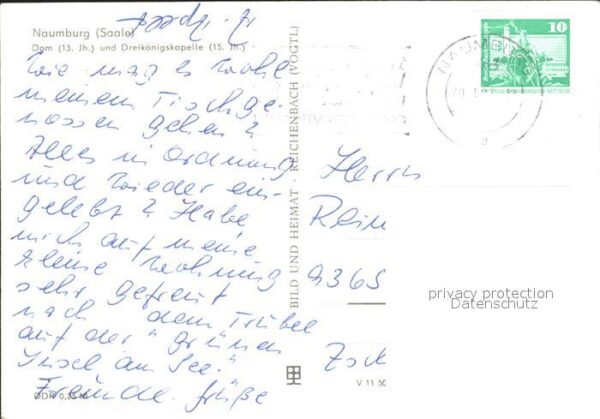 Naumburg (Saale)
Dom (13. Jh.) und Dreikönigskapelle (15. Jh.)
Wie mag es wohl
meinem Tischge-
nossen gehen?
Alles in Ordnung
und wieder ein-
gelebt? Habe
mich auf meine
kleine Wohnung
sehr gefreut
nach dem Trubel
auf der "grünen
Insel am See."
Freundl. Grüße
DDR 0,25 M
BILD UND HEIMAT · REICHENBACH (VOGTL)
V 11 50
NAUMBURG
10
Herrn
Rein
9365
privacy protection
Datenschutz
Zsch